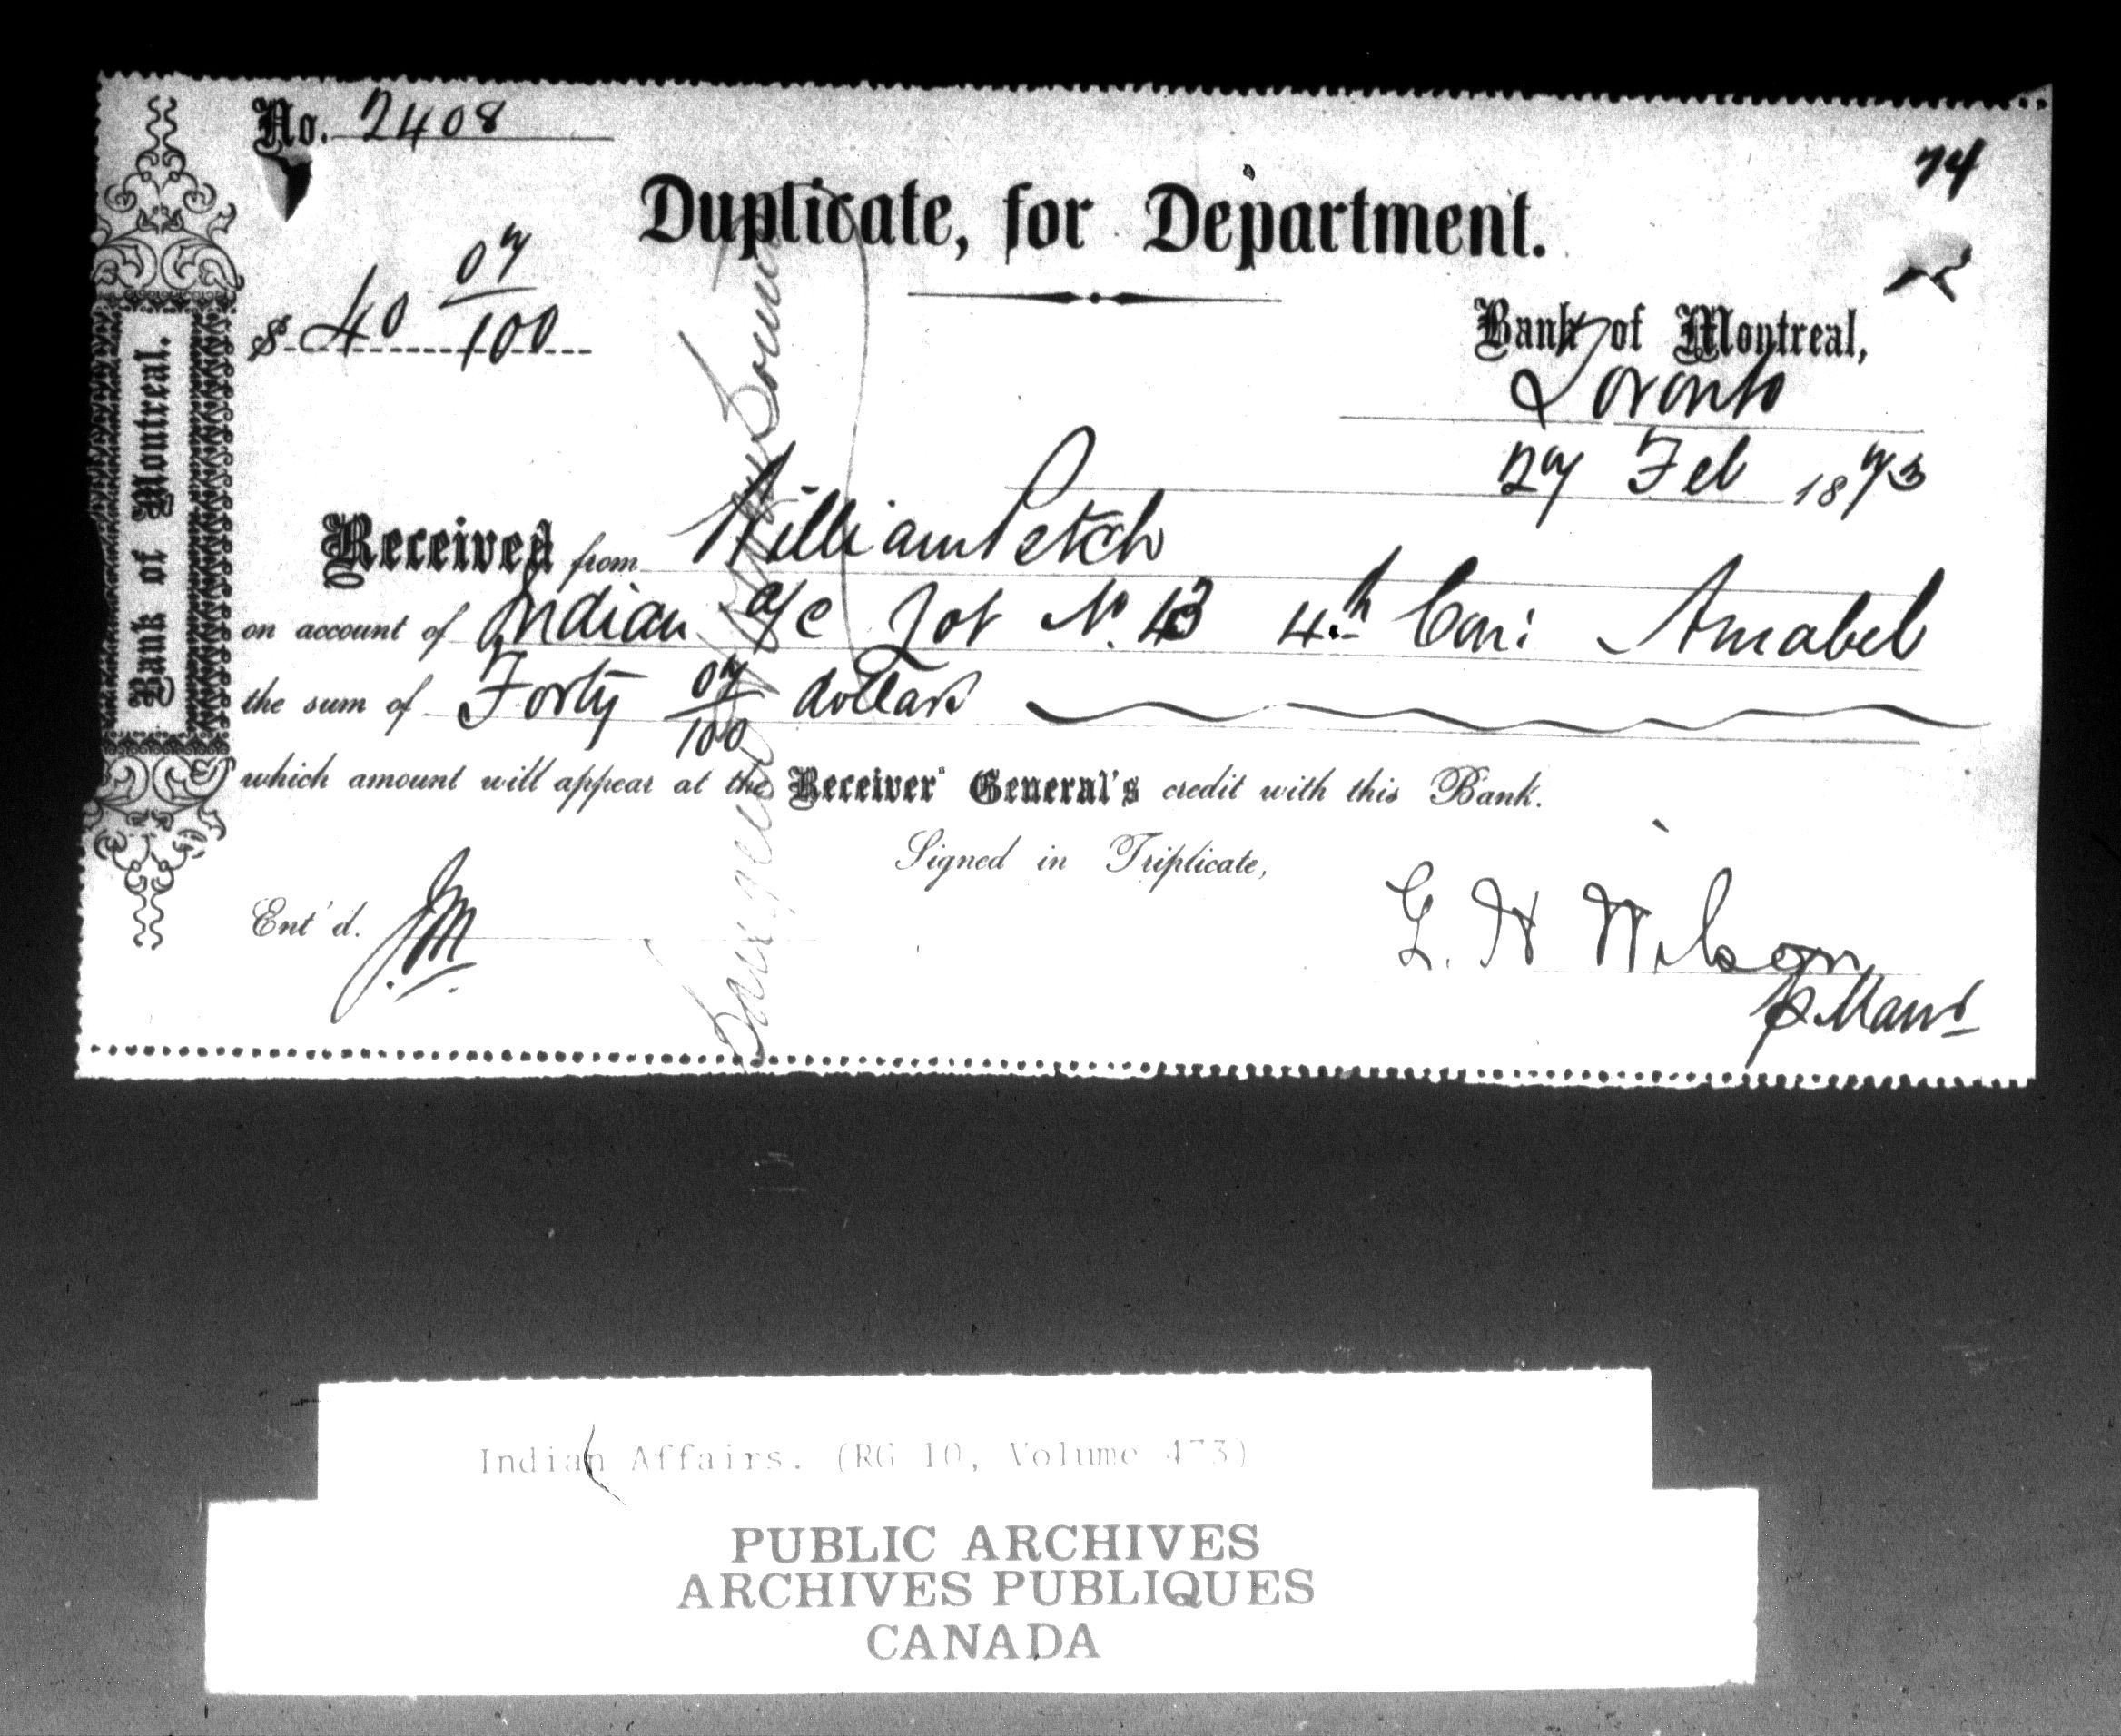 No. 2408
74
Duplicate, for Department.
$ 40 07/100
Bank of Montreal,
Toronto
27 Feb 1873
Received from William Petch
on account of Indian a/c Lot No. 43 4th Con: Amabel
the sum of Forty 07/100 dollars
which amount will appear at the Receiver General's credit with this Bank.
Signed in Triplicate,
Ent'd. J.M.
G. H Wilson
Bank of Montreal.
Indian Affairs. (RG 10, Volume 473)
PUBLIC ARCHIVES
ARCHIVES PUBLIQUES
CANADA